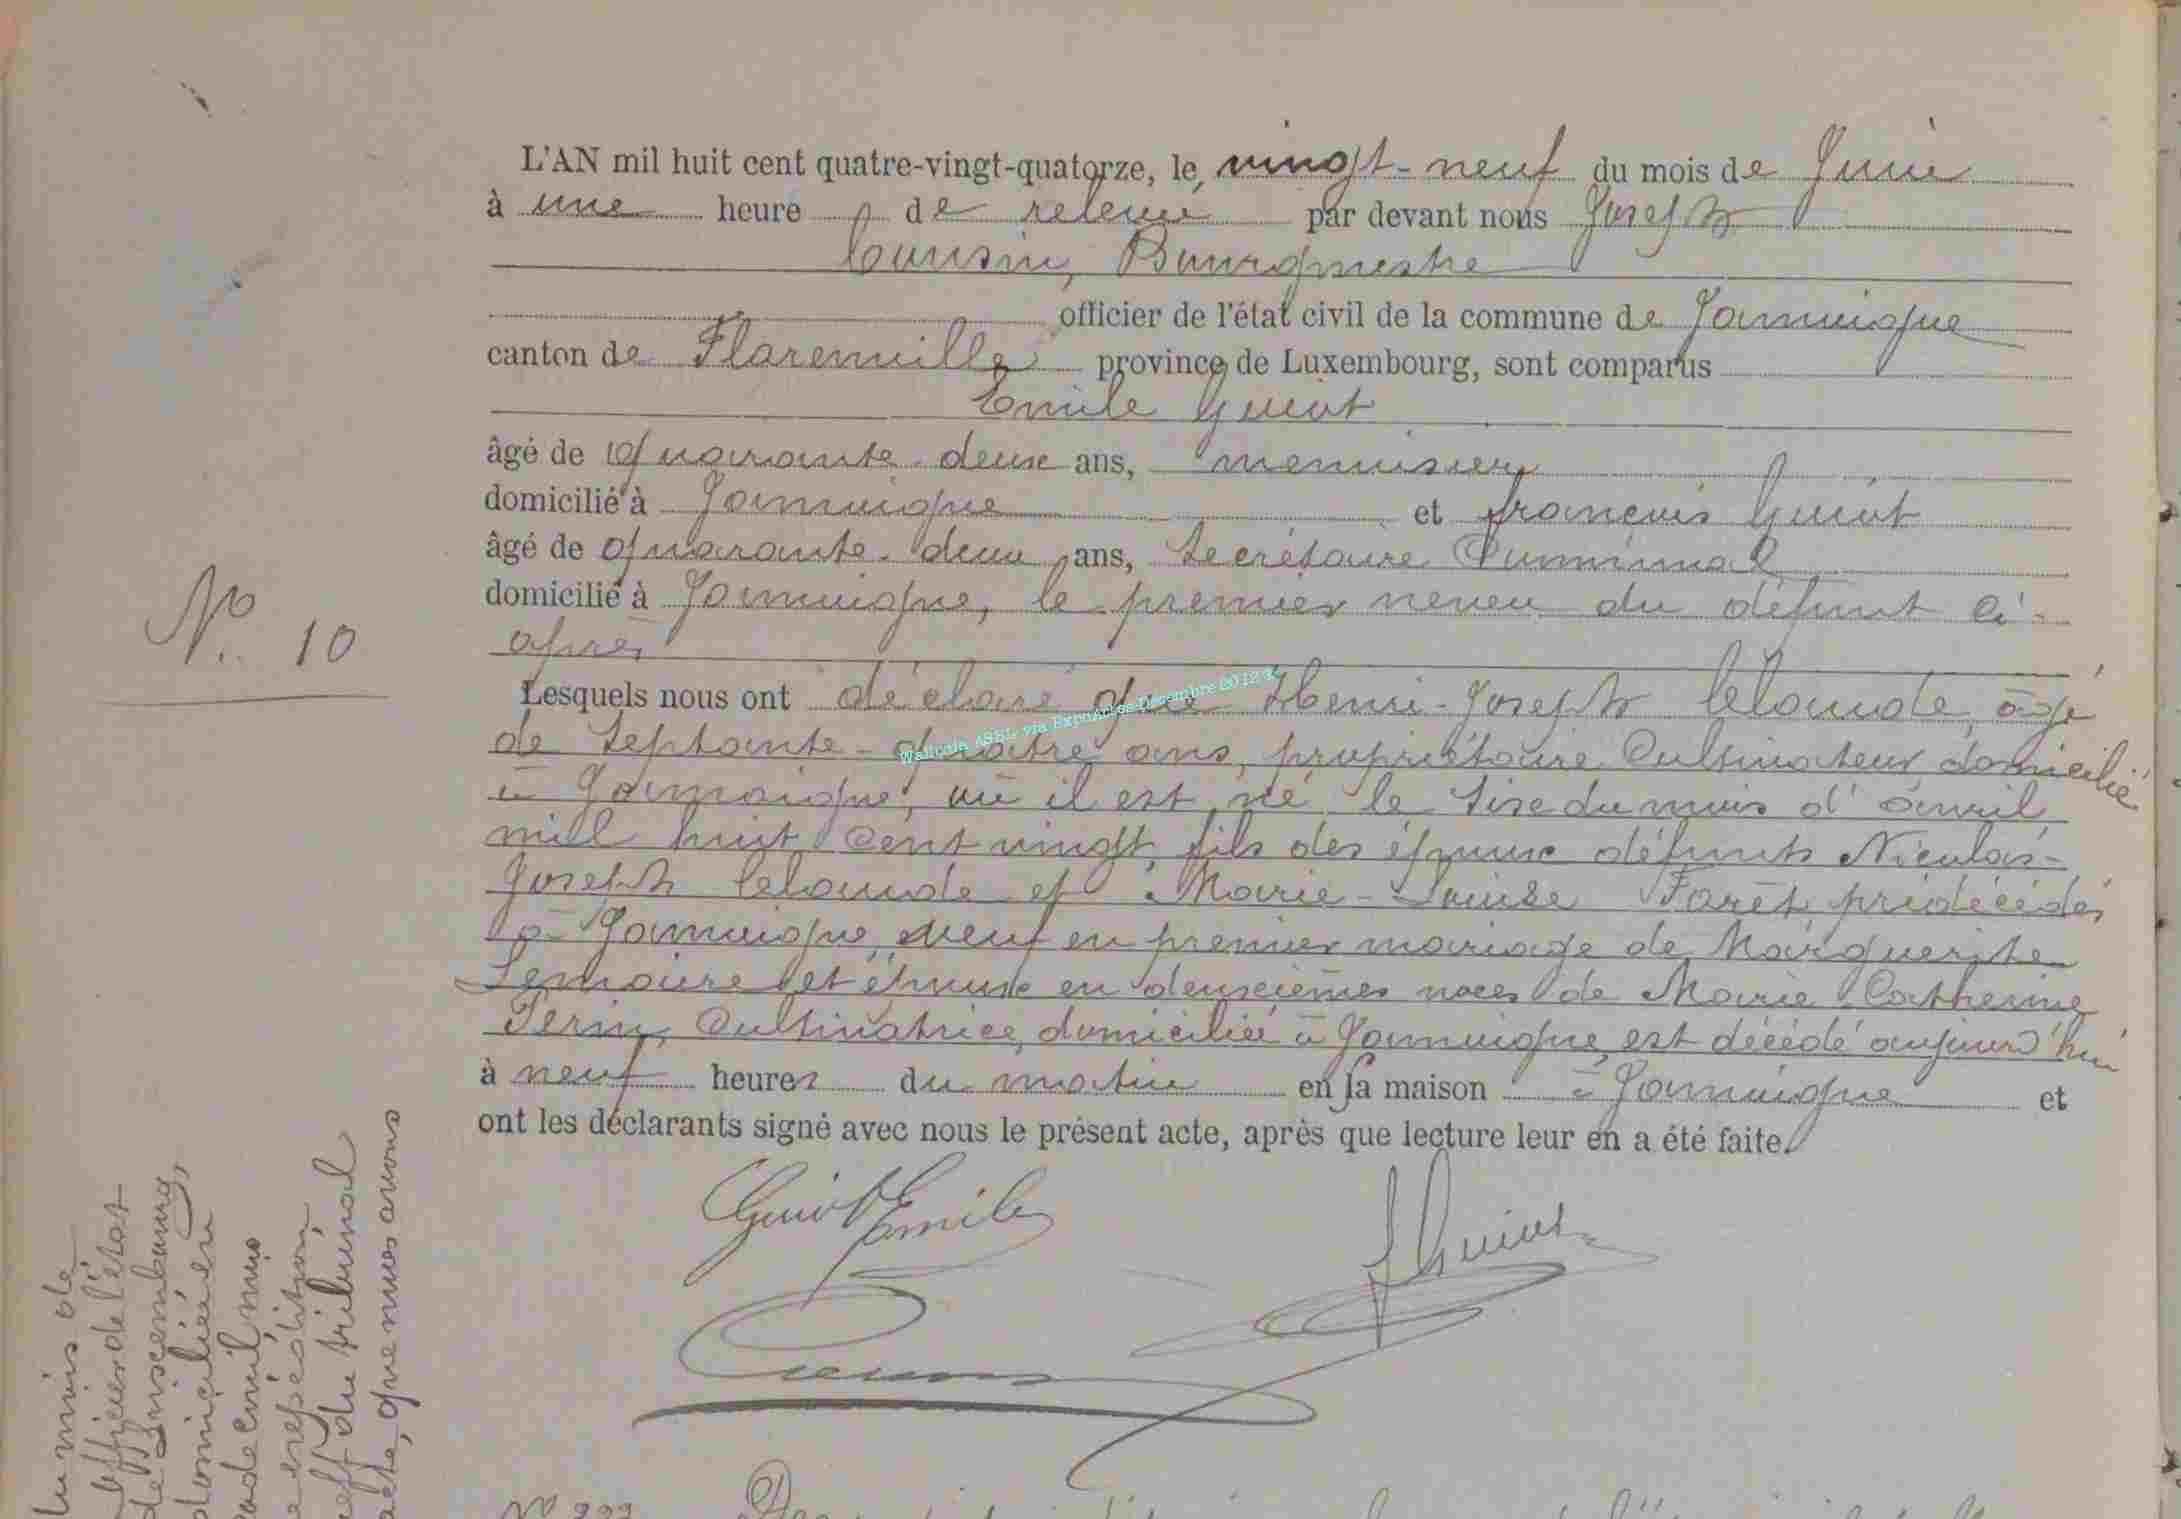 L'AN mil huit cent quatre-vingt-quatorze, le vingt-neuf du mois de Juin
à une heure de relevée par devant nous Joseph
Cousin, Bourgmestre
officier de l'état civil de la commune de Jamoigne
canton de Florenville province de Luxembourg, sont comparus
Emile Guiot
âgé de quarante-deux ans, menuisier
domicilié à Jamoigne et françois Guiot
âgé de quarante-deux ans, Secrétaire Communal
domicilié à Jamoigne, le premier neveu du défunt ci-
après
N° 10
Lesquels nous ont déclaré que Henri-Joseph Lelaude, âgé
de septante-quatre ans, propriétaire Cultivateur domicilié
à Jamoigne, où il est né le sise du mois d'avril
mil huit cent vingt, fils des époux défunts Nicolas-
Joseph Lelaude et Marie-Louise Forêt, prédécédés
à Jamoigne, veuf en premier mariage de Marguerite
Lemaire et époux en deuxièmes noces de Marie-Catherine
Perin, Cultivatrice, domiciliée à Jamoigne, est décédé aujourd'hui
à neuf heures du matin en sa maison à Jamoigne et
ont les déclarants signé avec nous le présent acte, après que lecture leur en a été faite.
Guiot Emile
F Guiot
Wallonia ASBL via ExpoActes Décembre 2012
du mois de
officier de l'état
de Luxembourg,
domiciliée en
code civil
expédition
greff du tribunal
acte, que nous avons